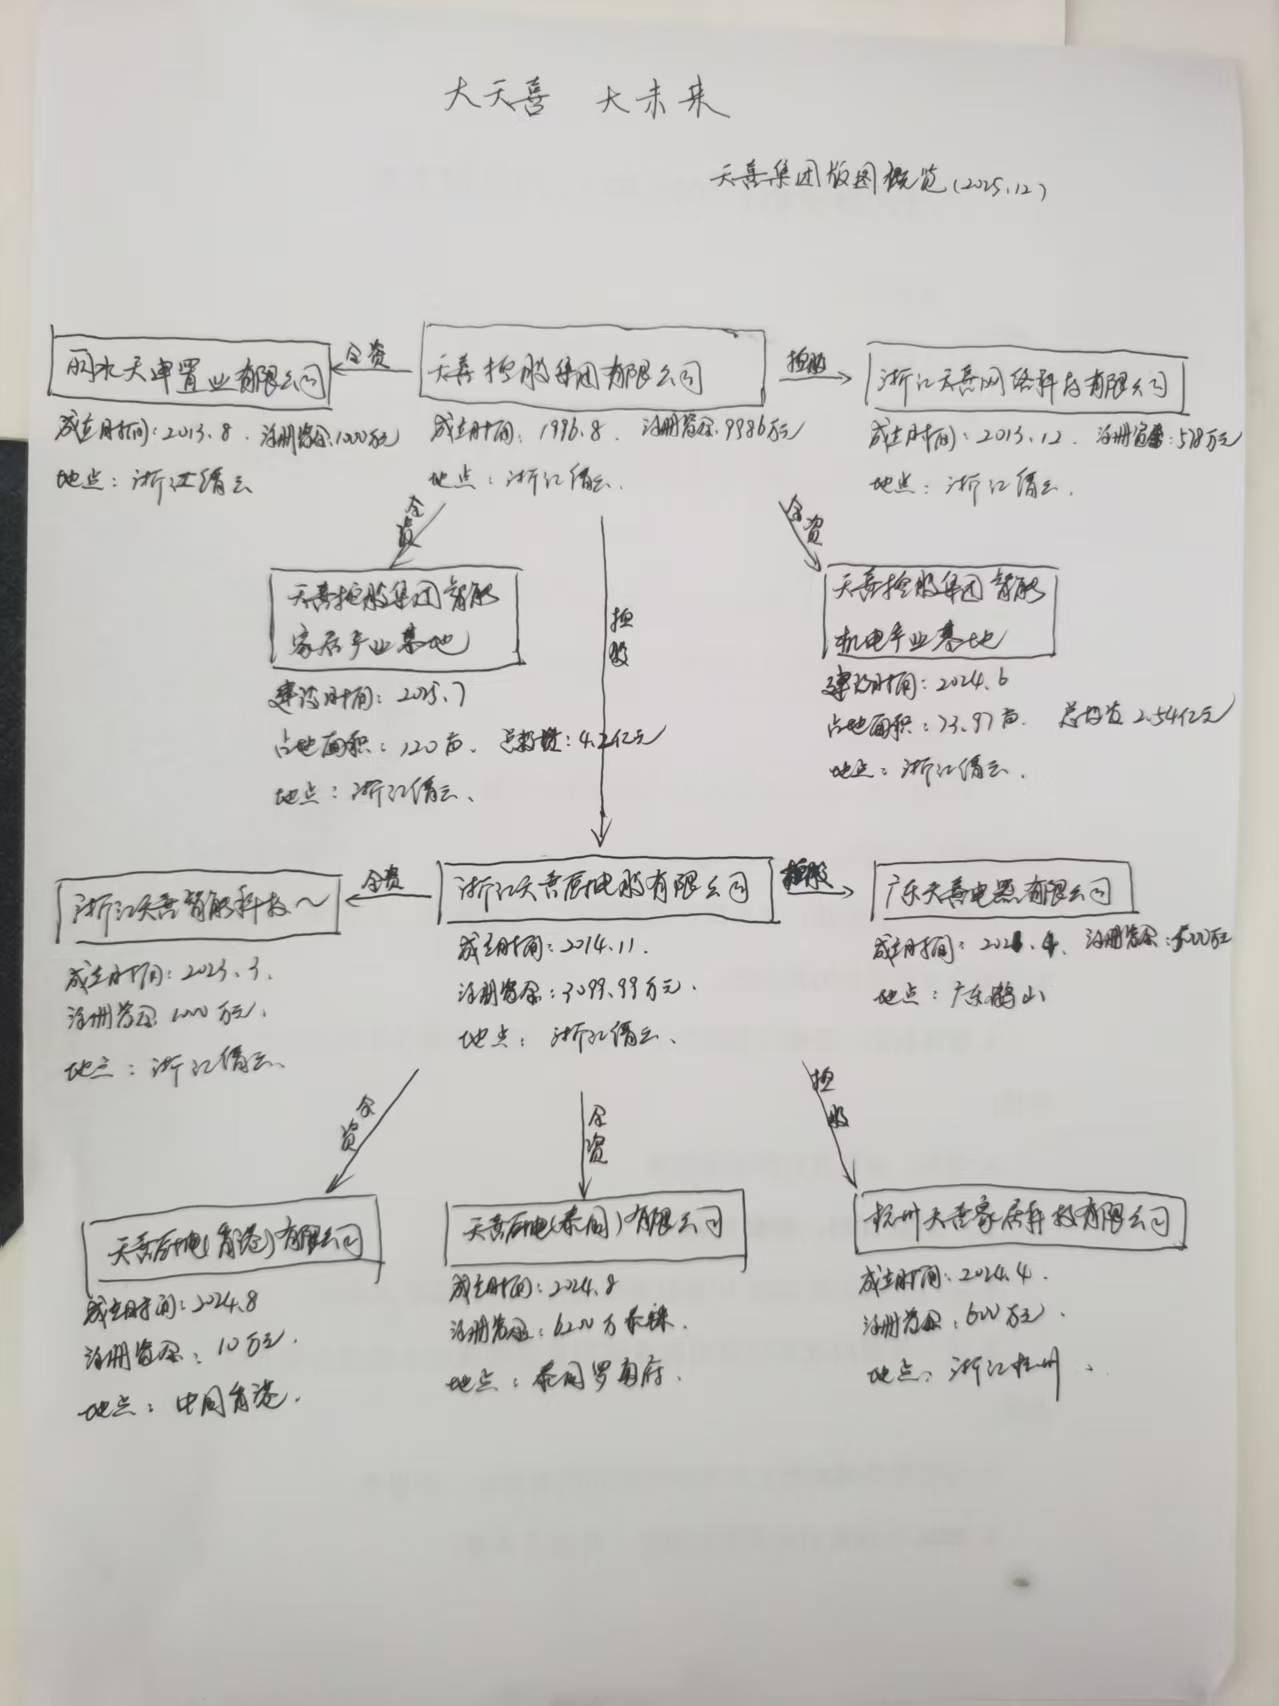 大天喜 大未来
天喜集团版图概览(2025.12)
全资
控股
丽水天坤置业有限公司
天喜控股集团有限公司
浙江天喜网络科技有限公司
成立时间:2013.8. 注册资金:1000万元
成立时间:1996.8. 注册资金:9986万元
成立时间:2013.12. 注册资金:518万元
地点:浙江缙云
地点:浙江缙云.
地点:浙江缙云.
全资
全资
天喜控股集团智能
家居产业基地
控股
天喜控股集团智能
机电产业基地
建设时间:2025.7
建设时间:2024.6
占地面积:120亩. 总投资:4.2亿元
占地面积:73.97亩. 总投资2.54亿元
地点:浙江缙云.
地点:浙江缙云.
全资
控股
浙江天喜智能科技~
浙江天喜厨电股有限公司
广东天喜电器有限公司
成立时间:2023.3.
成立时间:2014.11.
成立时间:2021.4. 注册资金:500万元
注册资金1000万元.
注册资金:3099.99万元.
地点:广东鹤山
地点:浙江缙云.
地点:浙江缙云.
全资
全资
控股
天喜厨电(香港)有限公司
天喜厨电(泰国)有限公司
杭州天喜家居科技有限公司
成立时间:2024.8
成立时间:2024.8
成立时间:2024.4.
注册资金:10万元.
注册资金:6200万泰铢.
注册资金:600万元.
地点:中国香港.
地点:泰国罗勇府.
地点:浙江杭州.